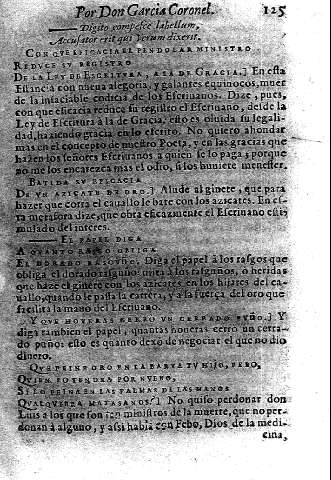 Por Don Garcia Coronel. 125
Digito compesce labellum,
Accusator erit qui verum dixerit.
CON QUE EFICACIA EL PENDOLAR MINISTRO
REDUCE SU REGISTRO
DE LA LEY DE ESCRITURA, A LA DE GRACIA.] En esta
Estancia con nueva alegoria, y galantes equivocos, muer
de la insaciable codicia de los Escriuanos. Dize, pues,
con que eficacia reduce su registro el Escriuano, desde la
Ley de Escritura à la de Gracia, esto es oluida su legali-
dad, haziendo gracia en lo escrito. No quiero ahondar
mas en el concepto de nuestro Poeta, y en las gracias que
hazen los señores Escriuanos a quien se lo paga; porque
no me los encarezca mas el odio, si los huuiere menester.
BATIDA SU EFICACIA
DE UN AZICATE DE ORO.] Alude al ginete, que para
hazer que corra el cauallo le bate con los azicates. En es-
ta metafora dize, que obra eficazmente el Escriuano esti-
mulado del interes.
EL PAPEL DIGA
A QUANTO RASGO OBLIGA
EL DORADO RASGUÑO. Diga el papel à los rasgos que
obliga el dorado rasguño: imita à los rasguños, ò heridas
que haze el ginete con los azicates en los hijares del ca-
uallo, quando le passa la carrera, y a la fuerça del oro que
facilita la mano del Escriuano.
Y QUE HONERAS CERRÒ UN CERRADO PUÑO.] Y
diga tambien el papel, quantas honeras cerrò un cerra-
do puño: esto es quanto dexò de negociar el que no dio
dinero.
QUE PEINE ORO EN LA BARBA TU HIJO, FEBO,
QUIEN
SI LO PEINA EN LAS PALMAS DE LAS MANOS
QUALQUIERA MATASANOS?] No quiso perdonar don
Luis a los que son ministros de la muerte, que no per-
donan à alguno, y assi habla con Febo, Dios de la medi-
cina,